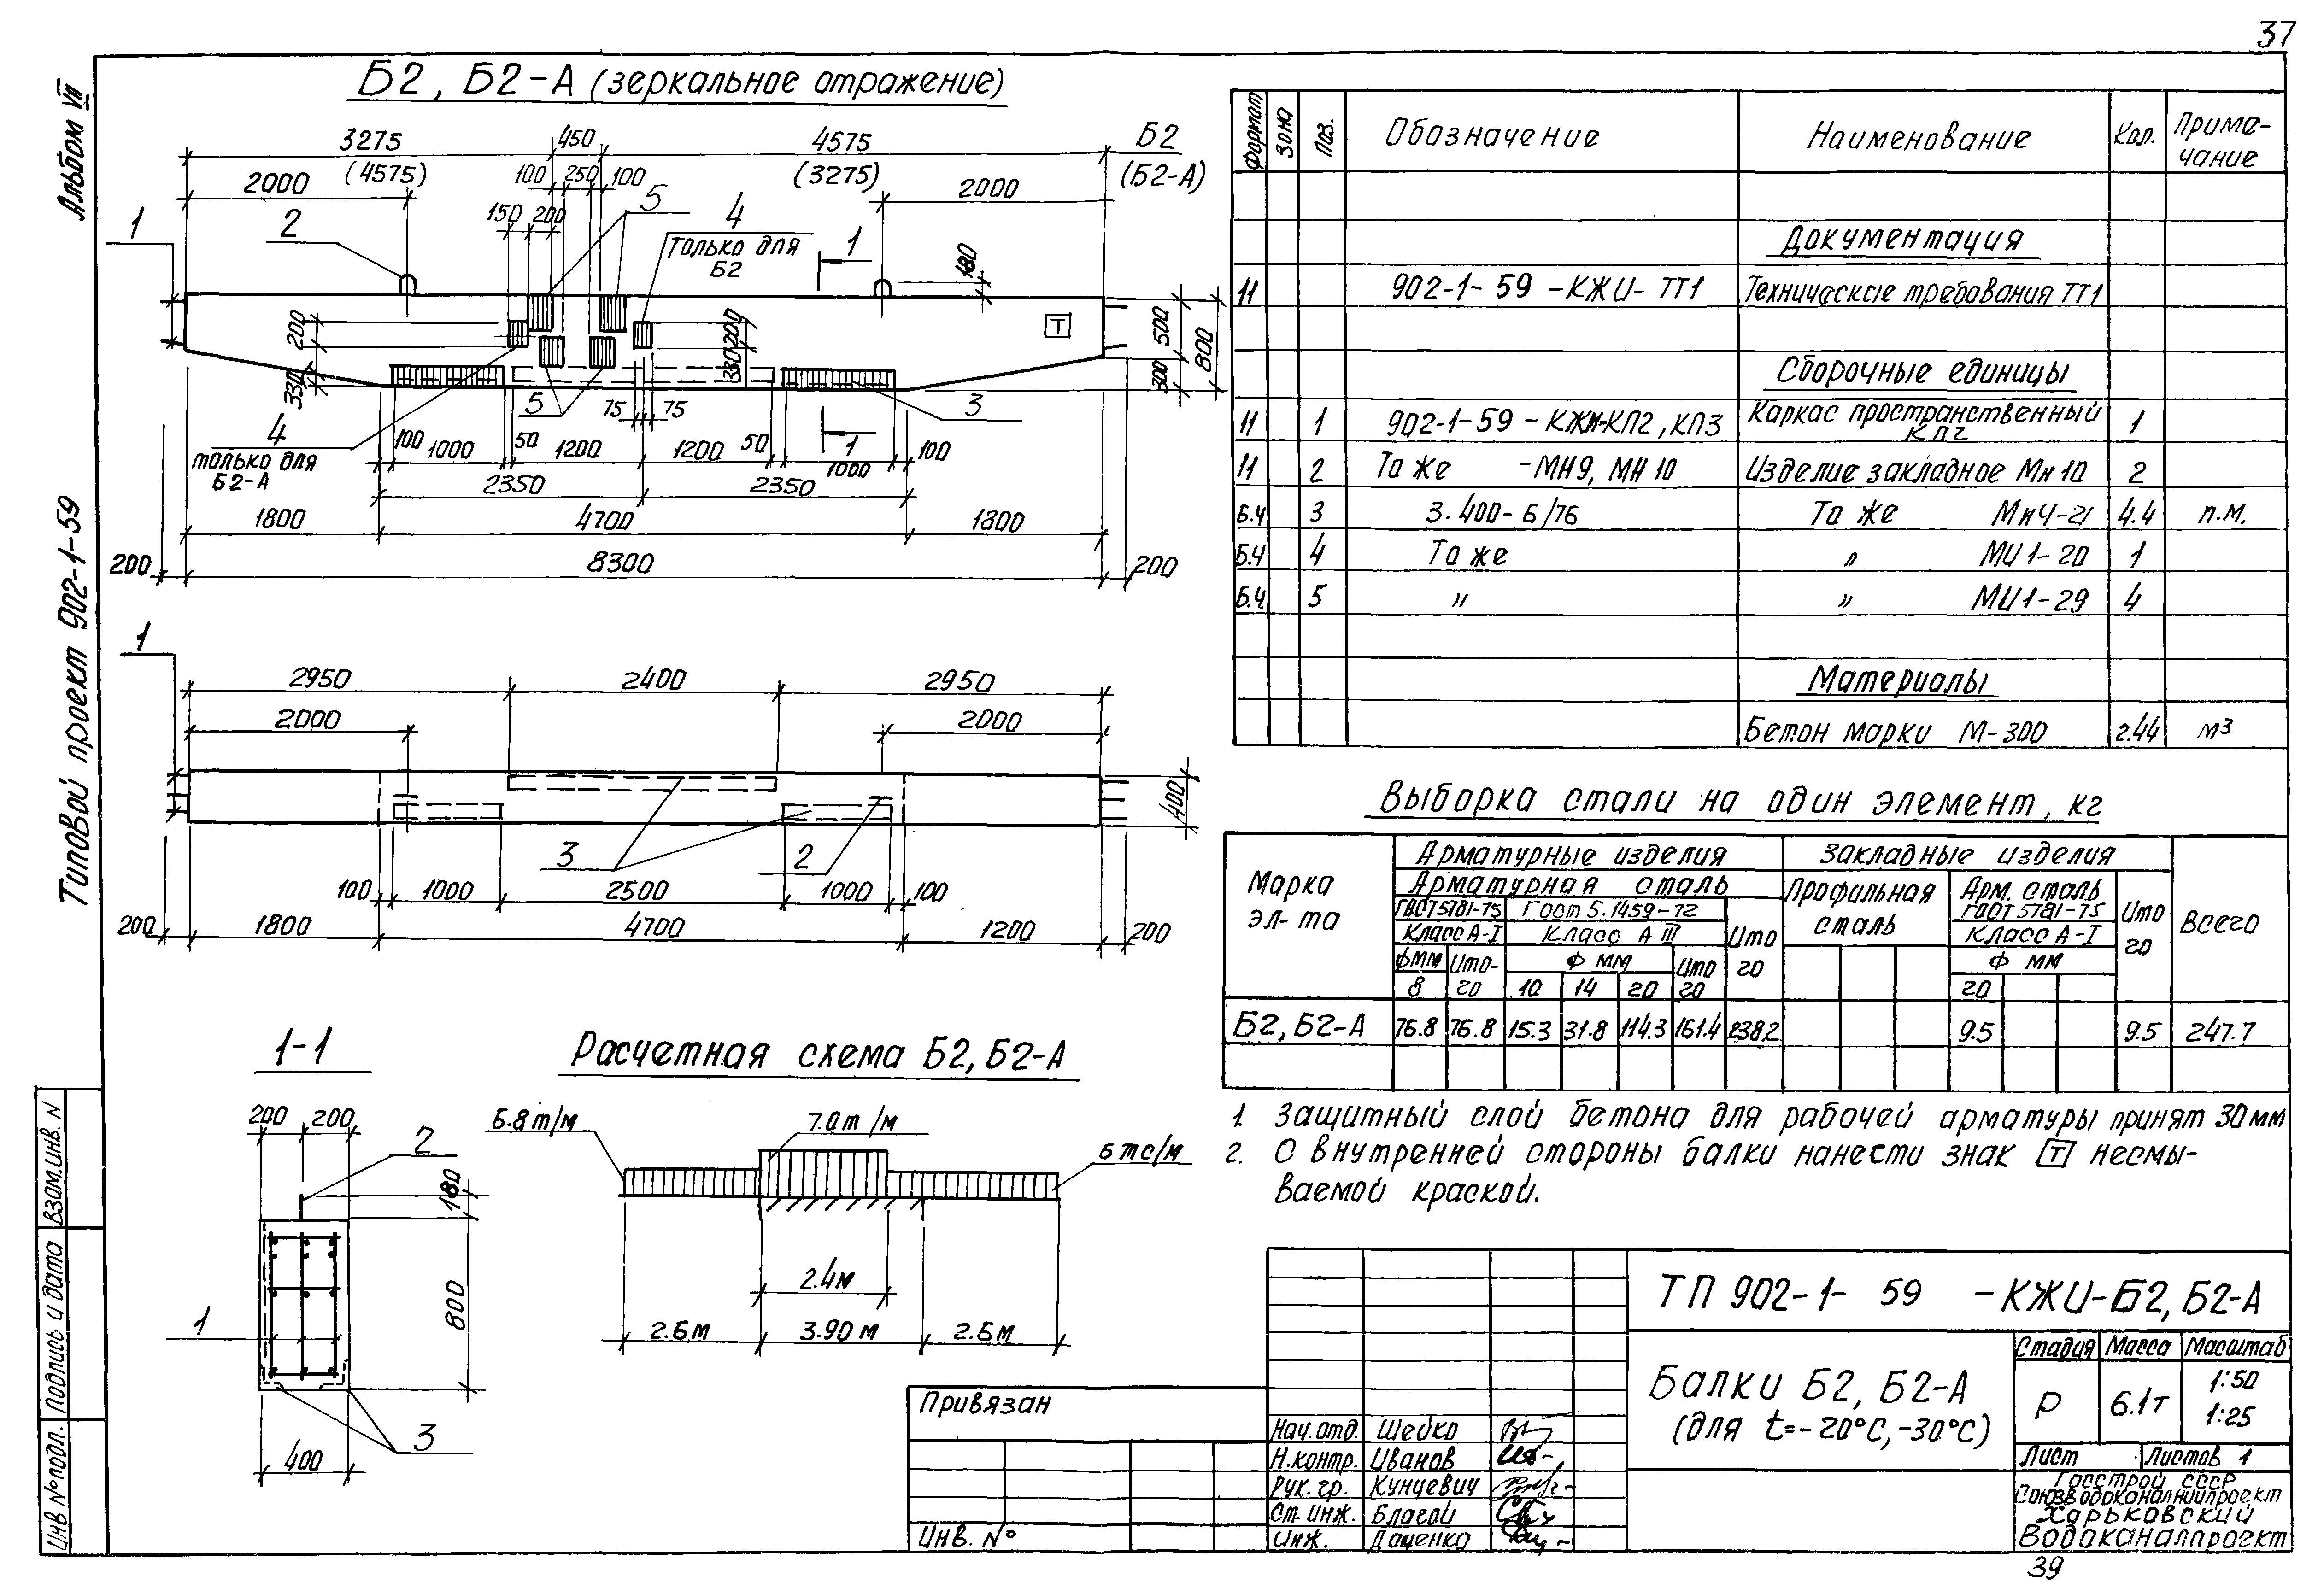 37
Альбом VII
Типовой проект 902-1-59
Б2, Б2-А (зеркальное отражение)
3275 450 4575 Б2
(4575) (3275) (Б2-А)
2000 100 250 100 2000
150 200 5 4
только для
Б2
1 2 1 180
200 330 200 330 500 300 800
Т
4 5 75 75 3
только для
Б2-А
100 1000 50 1200 1200 50 1 1000 100
2350 2350
1800 4700 1800
200 8300 200
1
2950 2400 2950
2000 2000
400
3 2
100 1000 2500 1000 100
200 1800 4700 1200 200
1-1
200 200
2
180
800
1
3
400
Расчетная схема Б2, Б2-А
6.8т/м 7.0т/м 6тс/м
2.4м
2.6м 3.90м 2.6м
Формат Зона Поз. Обозначение Наименование Кол. Приме-
чание
Документация
11 902-1-59-КЖИ-ТТ1 Технические требования ТТ1
Сборочные единицы
11 1 902-1-59-КЖИ-КП2, КП3 Каркас пространственный КП2 1
11 2 То же -МН9, МН10 Изделие закладное Мн10 2
Б.Ч 3 3.400-6/76 То же МнЧ-21 4.4 п.м.
Б.Ч 4 То же " МИ1-20 1
Б.Ч. 5 " " МИ1-29 4
Материалы
Бетон марки М-300 2.44 м3
Выборка стали на один элемент, кг
Марка
эл-та
Арматурные изделия Закладные изделия
Арматурная сталь Профильная
сталь Арм. сталь
ГОСТ5781-75 ГОСТ 5.1459-72 Итого ГОСТ 5781-75 Итого Всего
Класс А-I Класс А III Класс А-I
Фмм Итого Ф мм Итого Ф мм
8 10 14 20 20
Б2, Б2-А 76.8 76.8 15.3 31.8 114.3 161.4 238.2 9.5 9.5 247.7
1. Защитный слой бетона для рабочей арматуры принят 30мм
2. С внутренней стороны балки нанести знак Т несмы-
ваемой краской.
ТП 902-1-59 -КЖИ-Б2, Б2-А
Балки Б2, Б2-А
(для t=-20°С, -30°С)
Стадия Масса Масштаб
Р 6.1т 1:50
1:25
Лист Листов 1
Госстрой СССР
Союзводоканалниипроект
Харьковский
Водоканалпроект
Привязан
Инв. №
Нач. отд. Шейко
Н.контр. Иванов
Рук. гр. Кунцевич
Ст. инж. Благой
Инж. Даценко
Взам.инв. N
Подпись и дата
Инв № подл.
39